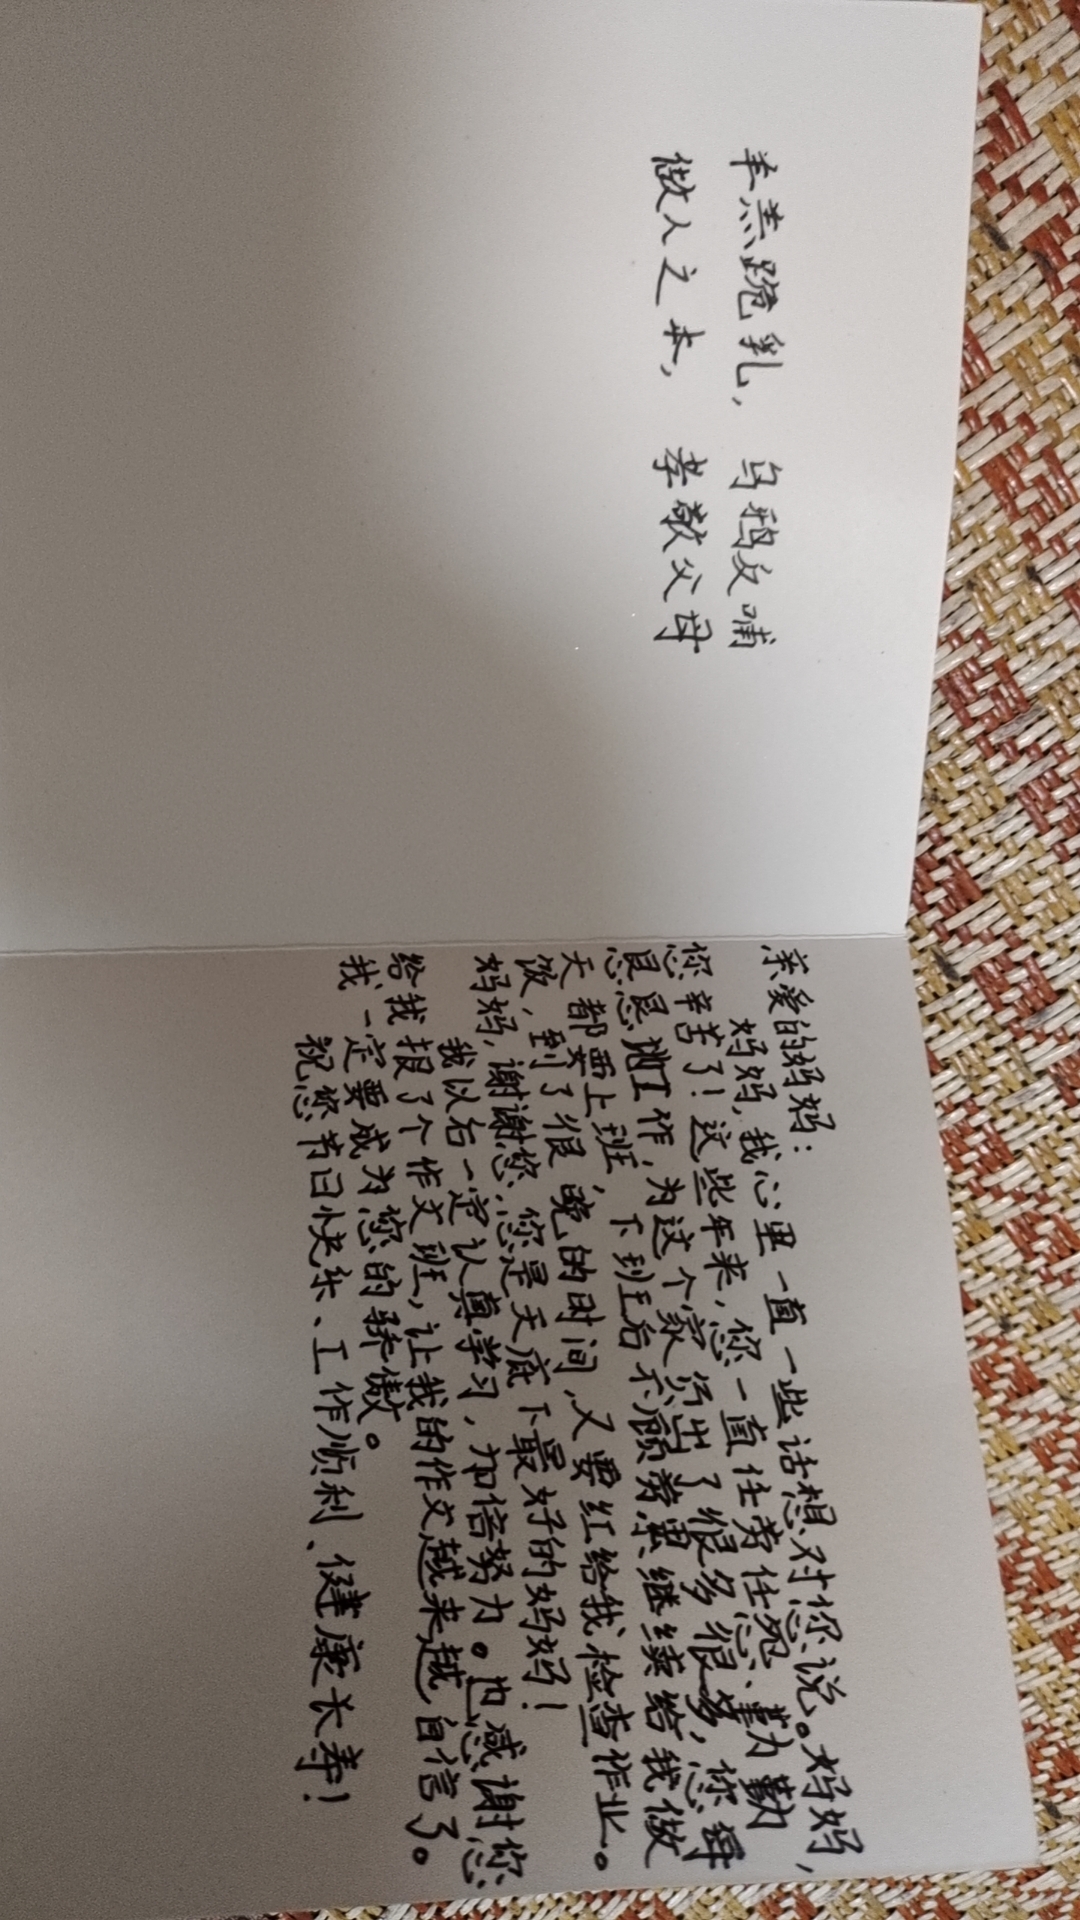 羊羔跪乳， 乌鸦反哺
做人之本， 孝敬父母
亲爱的妈妈：
妈妈，我心里一直一些话想对您说。妈妈，
您辛苦了！这些年来，您一直任劳任怨、勤勤
恳恳地工作，为这个家付出了很多很多，您每
天都要上班，下班后不顾劳累继续给我做
饭，到了很晚的时间，又要红给我检查作业。
妈妈，谢谢您，您是天底下最好的妈妈！
我以后一定认真学习，加倍努力。也感谢您
给我报了个作文班，让我的作文越来越自信了。
我一定要成为您的骄傲。
祝您节日快乐、工作顺利、健康长寿！